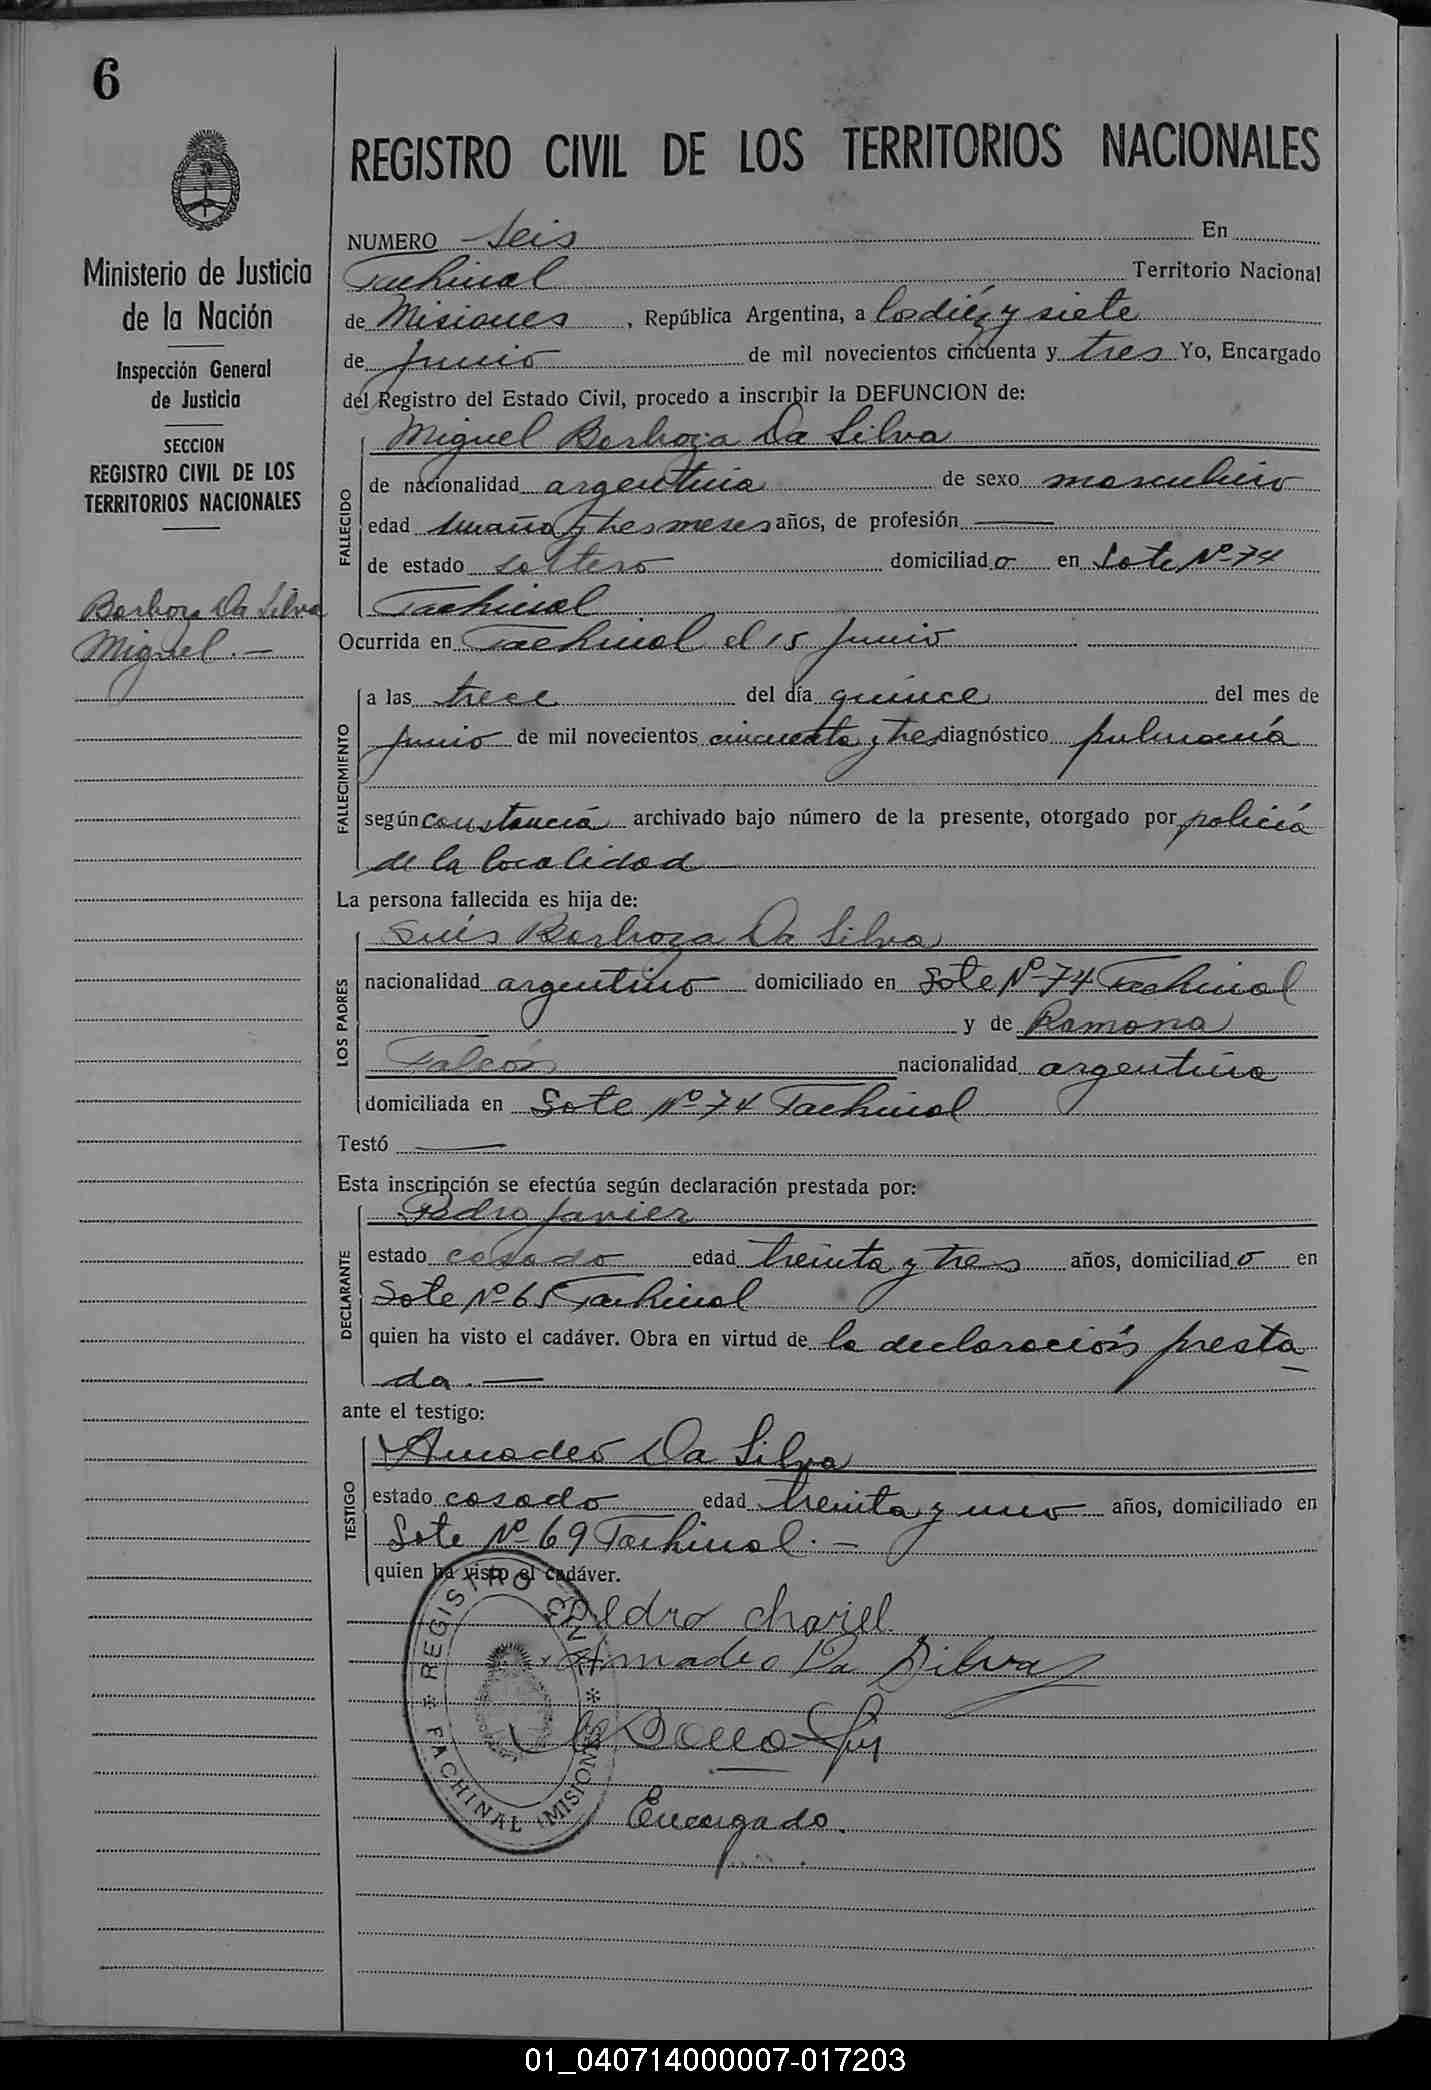 6
Ministerio de Justicia
de la Nación
Inspección General
de Justicia
SECCION
REGISTRO CIVIL DE LOS
TERRITORIOS NACIONALES
Barboza Da Silva
Miguel . —
REGISTRO CIVIL DE LOS TERRITORIOS NACIONALES
NUMERO Seis En
Fachinal Territorio Nacional
de Misiones , República Argentina, a los diéz y siete
de Junio de mil novecientos cincuenta y tres Yo, Encargado
del Registro del Estado Civil, procedo a inscribir la DEFUNCION de:
Miguel Barboza Da Silva
FALLECIDO
de nacionalidad argentina de sexo masculino
edad un año y tres meses años, de profesión —
de estado soltero domiciliado en Lote Nº 74
Fachinal
Ocurrida en Fachinal el 15 Junio
FALLECIMIENTO
a las trece del día quince del mes de
Junio de mil novecientos cincuenta y tres diagnóstico pulmonía
según constancia archivado bajo número de la presente, otorgado por policía
de la localidad
La persona fallecida es hija de:
LOS PADRES
Luís Barboza Da Silva
nacionalidad argentino domiciliado en Lote Nº 74 Fachinal
y de Ramona
Falcón nacionalidad argentina
domiciliada en Lote Nº 74 Fachinal
Testó —
Esta inscripción se efectúa según declaración prestada por:
DECLARANTE
Pedro Javier
estado casado edad treinta y tres años, domiciliado en
Lote Nº 65 Fachinal
quien ha visto el cadáver. Obra en virtud de la declaración presta
da . —
ante el testigo:
TESTIGO
Amadeo Da Silva
estado casado edad treinta y uno años, domiciliado en
Lote Nº 69 Fachinal . —
quien ha visto el cadáver.
Pedro chaviel
Amadeo Da Silva
Encargado.
REGISTRO CIVIL * FACHINAL (MISIONES) *
01_040714000007-017203